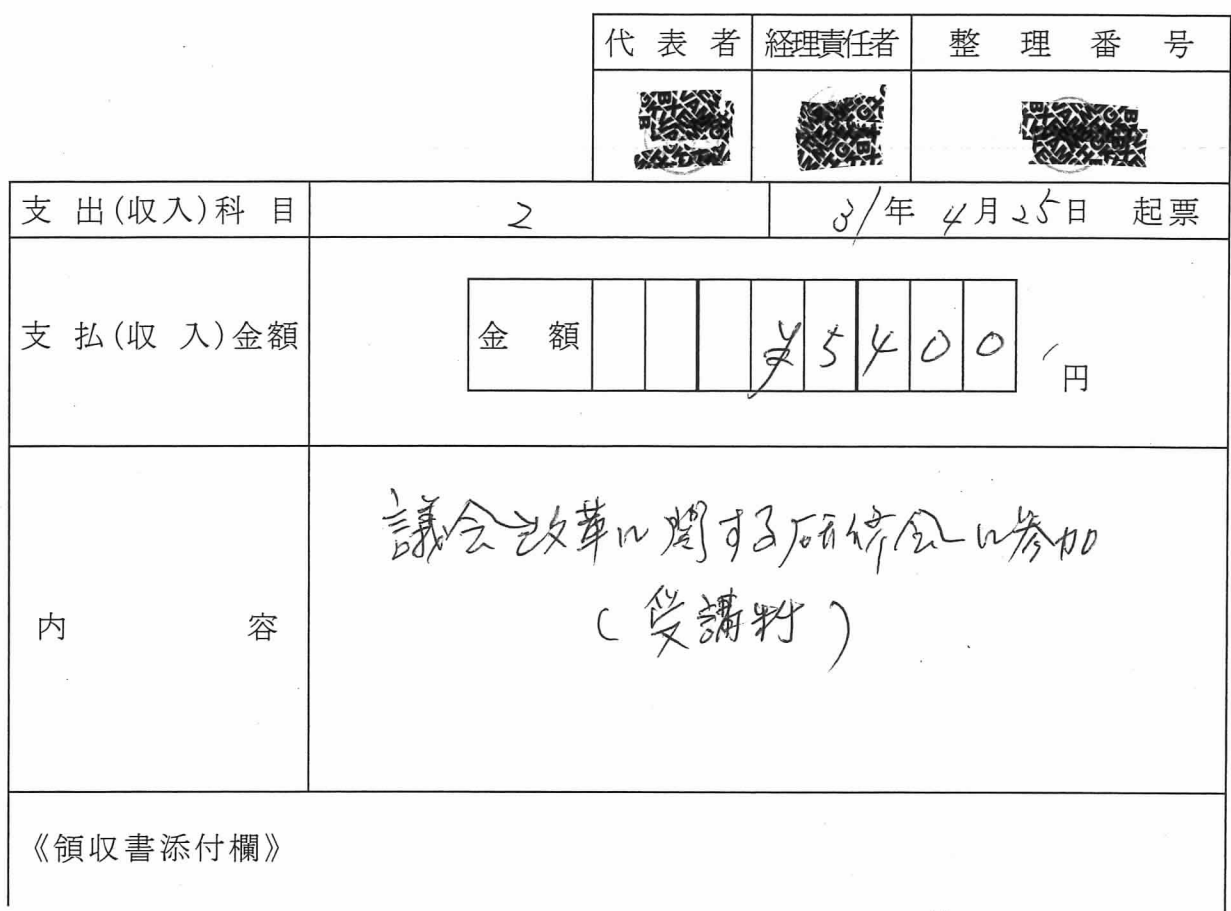 代表者 経理責任者 整理番号
支出(収入)科目 2 31年4月25日 起票
支払(収入)金額 金額 ¥5400 円
議会改革に関する研修会に参加
内容 (受講料)
《領収書添付欄》